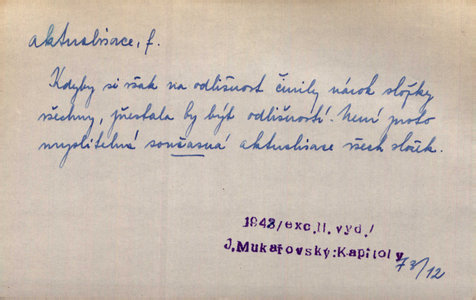 aktualisace, f.
Kdyby si však na odlišnost činily nárok složky
všechny, přestala by být odlišností. Není proto
myslitelná současná aktualisace všech složek.
1948/exc.II.vyd./
J.Mukařovský:Kapitoly
73/12